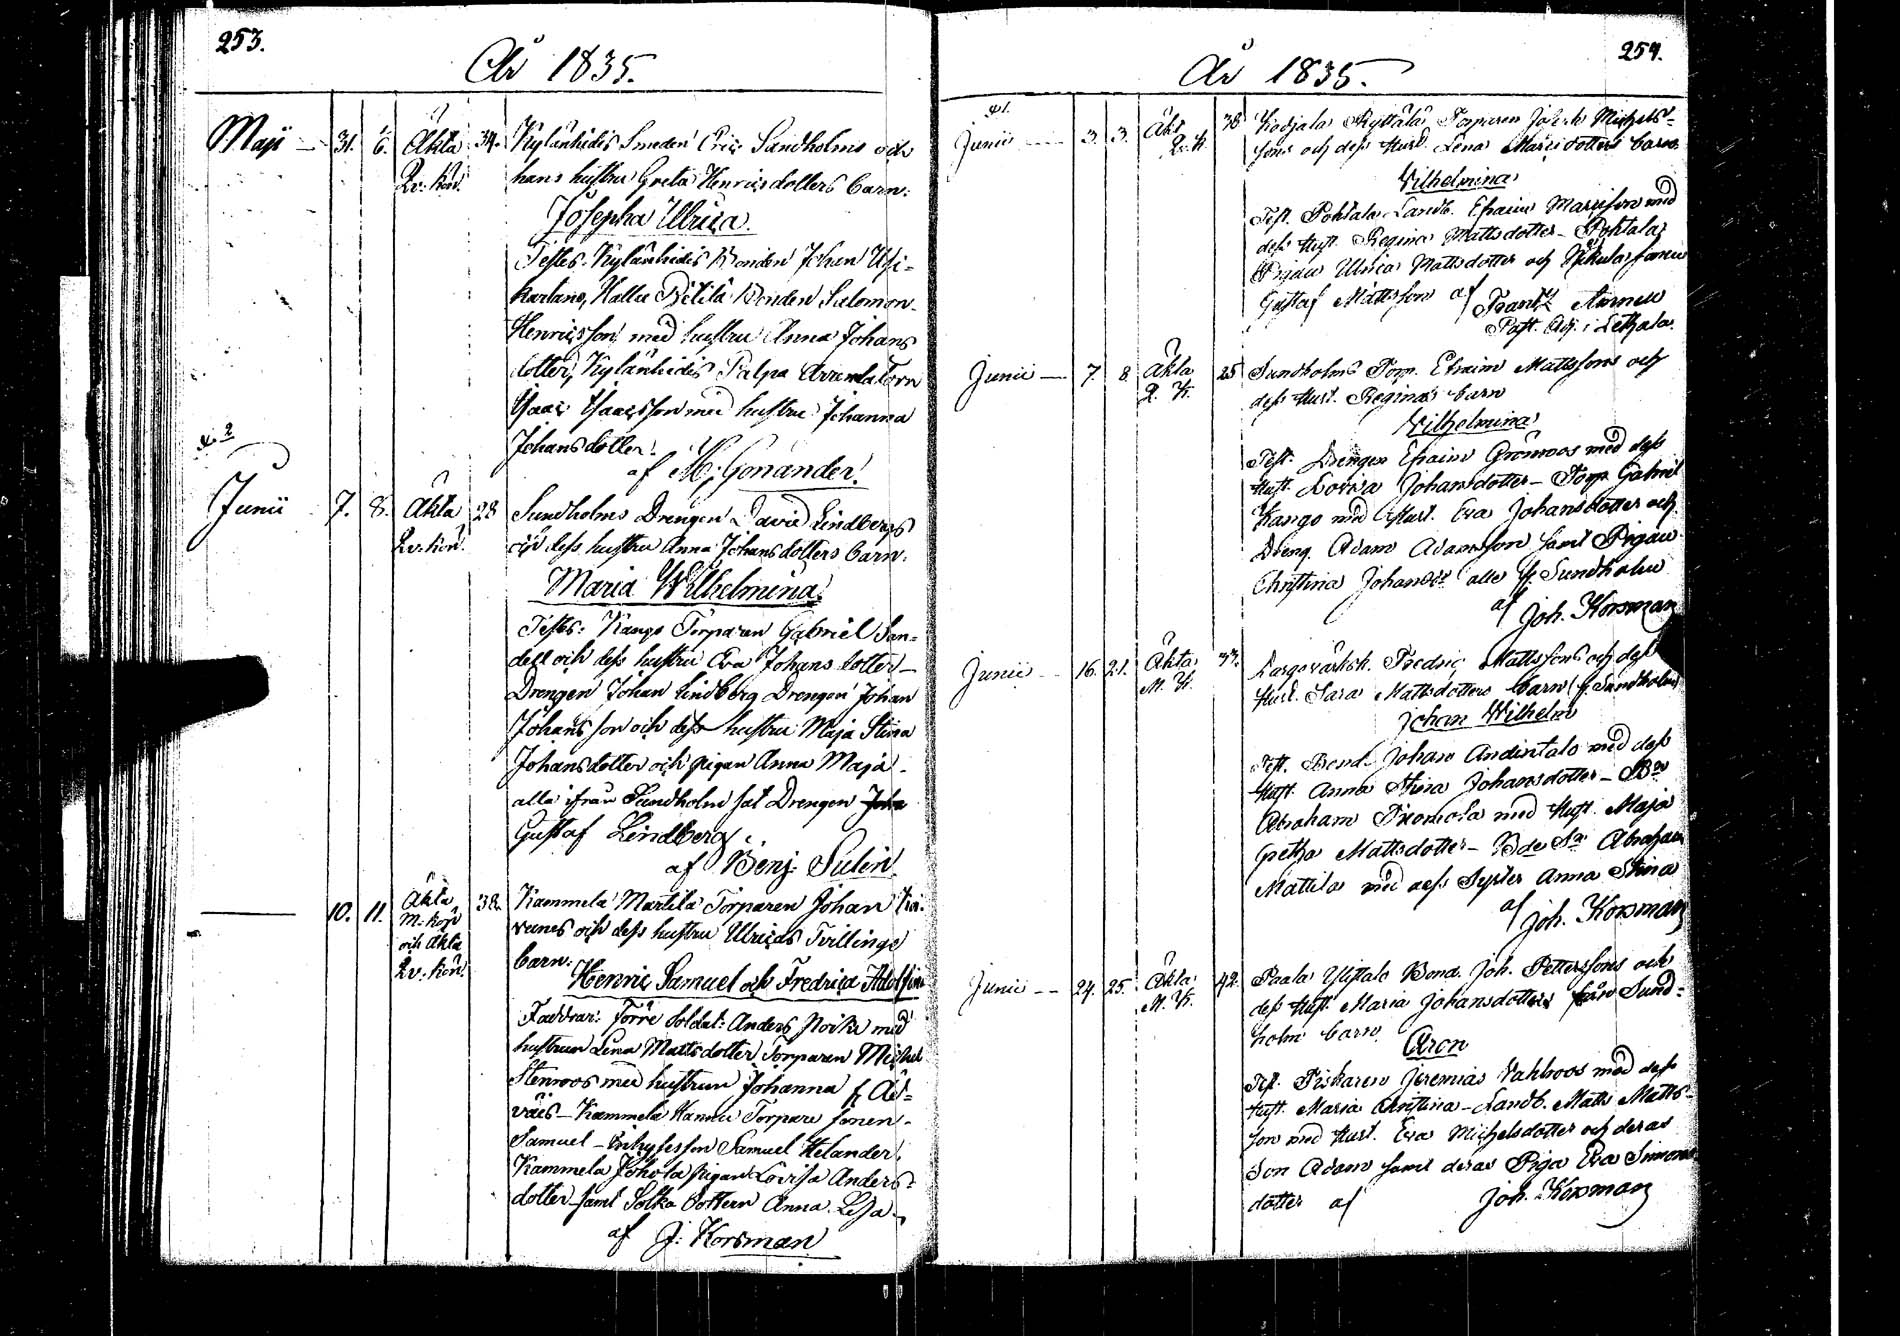 253.
År 1835.
Maji — 31. 6. Äkta Qv: kön. 34. Kylänhidis Smeden Eric Sandholms och
hans hustru Greta Henricsdotters barn:
Josepha Ulrica.
Testes: Kylänhidis Bonden Johan Usi-
kartano, Hallu Bonden Salomon
Henricsson med hustru Anna Johans
dotter, Kylänhidis Palpa
Isaac Isaacsson med hustru Johanna
Johansdotter.
af M. Gonander.
No 2
Junii 7. 8. Äkta Qv: kön. 28 Sundholms Drengen David Lindbergs
och dess hustru Anna Johansdotters barn.
Maria Wilhelmina.
Testes: Kango Torparen Gabriel San-
dell och dess hustru Eva Johansdotter —
Drengen Johan Lindberg Drengen Johan
Johansson och dess hustru Maja Stina
Johansdotter och pigan Anna Maja
alla ifrån Sundholm samt Drengen
Gustaf Lindberg.
af Benj: Sulin.
— 10. 11. Äkta M: kön och äkta Qv: kön. 38. Kammela Martila Torparen Johan
och dess hustru Ulricas Tvillinge
barn:
Henric Samuel och Fredrica Adolfina
Faddrar: Förre Soldat: Anders med
hustrun Lena Mattsdotter, Torparen Michel
Stenroos med hustrun Johanna
Kammela Hannu Torpare sonen
Samuel — Samuel Helander,
Kammela Johola pigan Lovisa Anders-
dotter samt Dottern Anna Lisa
af J. Korsman
254.
År 1835.
No 1.
Junii — 3. 3. Äkt. Q. K. 38 Kodjala Torparen Joseph Michels-
sons och dess Hust. Lena dotters barn
Wilhelmina
Test. Pohtala Landb. Efraim med
dess Hust. Regina Mattsdotter — Pohtala
Pigan Ulrica Mattsdotter och sonen
Gustaf Mattsson af Frantz
Past. Adj. i Letala.
Junii — 7. 8. Äkta Q. K. 25 Sundholms Torp. Efraim Mattssons och
dess Hust. Reginas barn
Wilhelmina
Test. Drengen Efraim Grönroos med dess
Hust. Lovisa Johansdotter — Torp. Gabriel
Kango med Hust. Eva Johansdotter och
Dreng. Adam Adamsson samt Pigan
Christina Johansdr alla fr. Sundholm
af Joh. Korsman
Junii — 16. 21. Äkta M. K. 33. Fredric Mattssons och dess
Hust. Sara Mattsdotters barn (fr. Sundholm)
Johan Wilhelm
Test. Bond. Johan Andintalo med dess
Hust. Anna Stina Johansdotter — Bn
Abraham med Hust. Maja
Gretha Mattsdotter — Bde Sn Abraham
Mattila med dess Syster Anna Stina
af Joh. Korsman
Junii — 24. 25. Äkta M. K. 42. Paala Ylistalo Bond. Joh. Petterssons och
dess Hust. Maria Johansdotters från Sund-
holm barn
Aron
Test. Fiskaren Jeremias Vahlroos med dess
Hust. Maria Christina — Landb. Matts Matts-
son med Hust. Eva Michelsdotter och deras
Son Adam samt deras Piga Eva Simons
dotter af Joh. Korsman